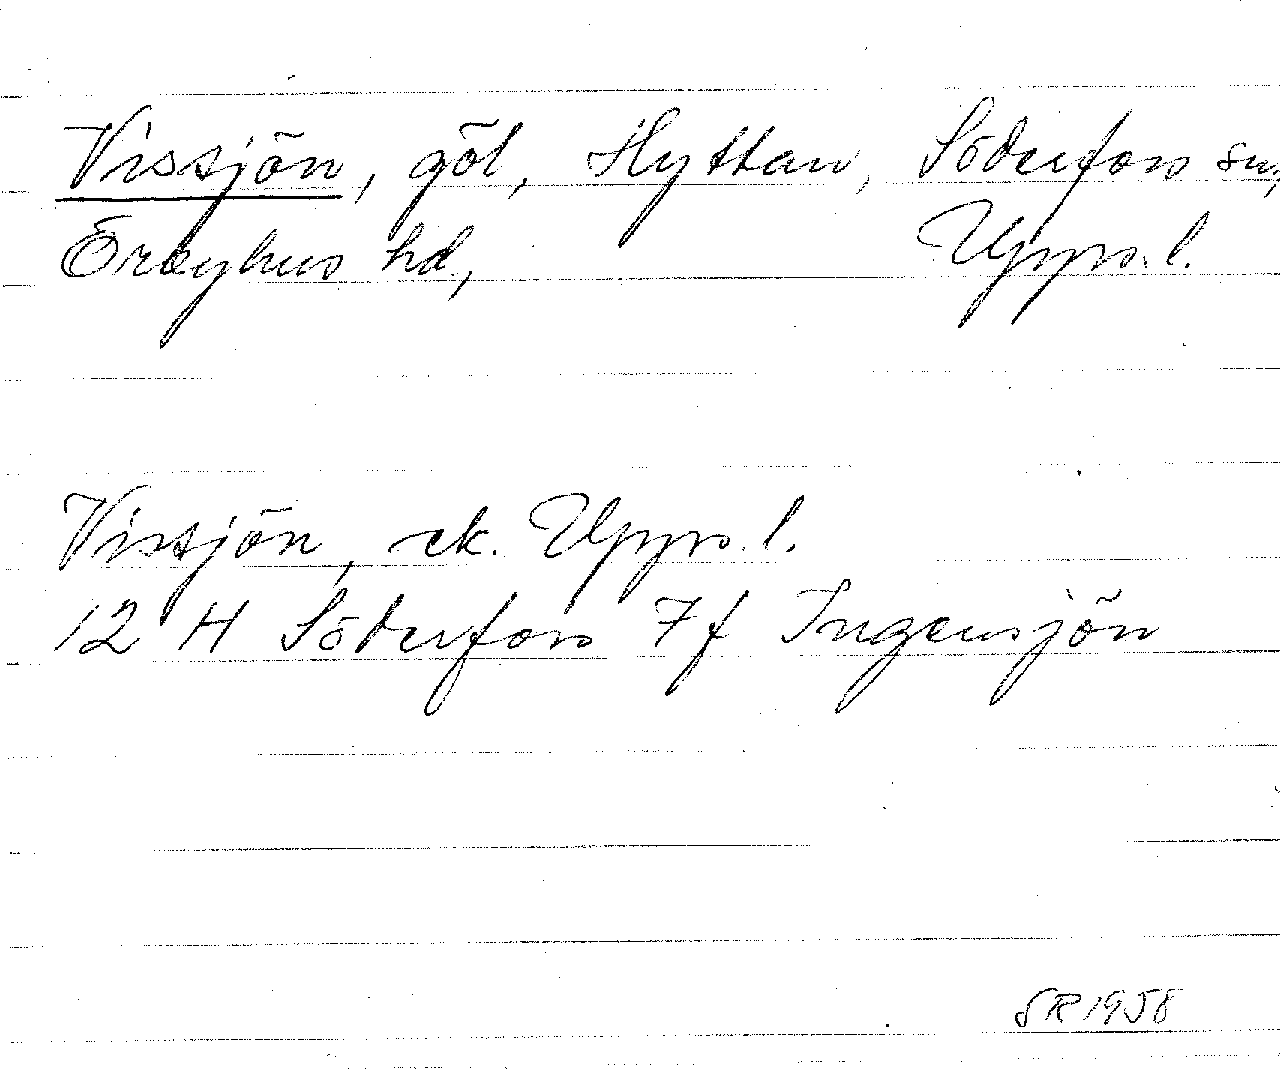 Vissjön, göl, Hyttan, Söderfors sn,
Örbyhus hd, Upps. l.
Vissjön, ek. Upps. l.
12 H Söderfors 7f Ingensjön
SR 1958